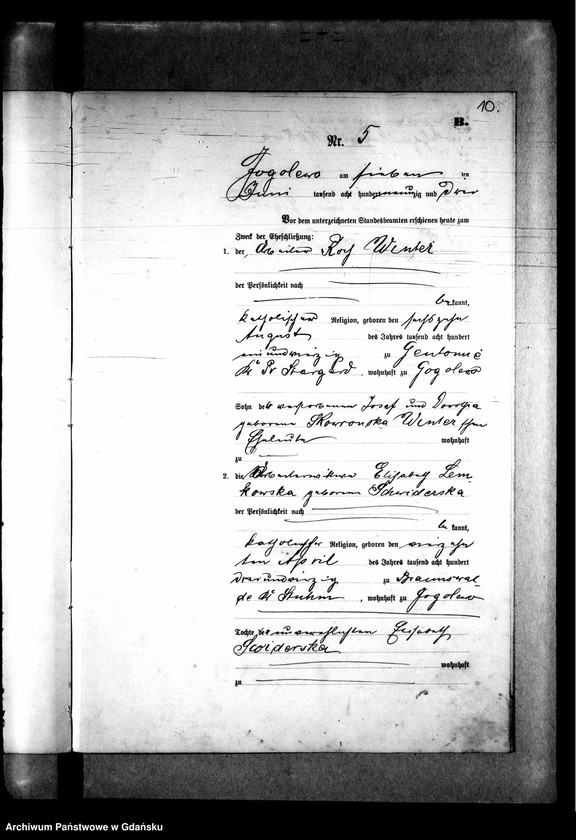 10.
B.
Nr. 5
Gogolewo am sieben ten
Juni tausend acht hundert neunzig und Drei
Vor dem unterzeichneten Standesbeamten erschienen heute zum
Zweck der Eheschließung:
1. der Arbeiter Winter
der Persönlichkeit nach
be kannt,
katholischer Religion, geboren den sechszehn
August des Jahres tausend acht hundert
zu Gentomie
Kr Pr Stargard, wohnhaft zu Gogolewo
Sohn der verstorbenen Josef und Dorothea
geborene Skowronska Winter schen
Eheleute wohnhaft
zu
2. die Arbeiterwitwe Elisabeth Lem
kowska geborene Schwiderska
der Persönlichkeit nach
be kannt,
katholischer Religion, geboren den vierzehn
ten April des Jahres tausend acht hundert
dreiundvierzig zu Braunswal
de Kr Stuhm, wohnhaft zu Gogolewo
Tochter der unverehelichten Elisabeth
Swiderska
wohnhaft
zu
Archiwum Państwowe w Gdańsku